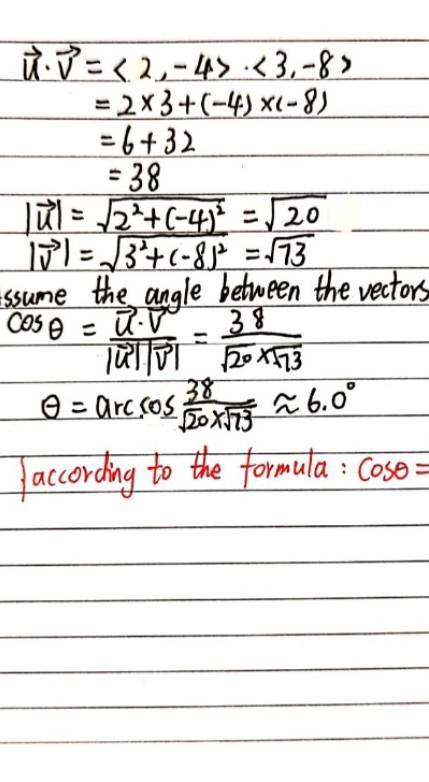 u⃗·v⃗ = <2,-4>·<3,-8>
= 2×3+(-4)×(-8)
= 6+32
= 38
|u⃗| = √(2²+(-4)²) = √20
|v⃗| = √(3²+(-8)²) = √73
ssume the angle between the vectors
cosθ = u⃗·v⃗/|u⃗||v⃗| = 38/√20×√73
θ = arccos 38/√20×√73 ≈ 6.0°
according to the formula : cosθ =